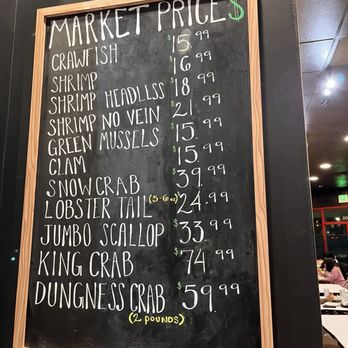 MARKET PRICE$
CRAWFISH $15.99
SHRIMP $16.99
SHRIMP HEADLESS $18.99
SHRIMP NO VEIN $21.99
GREEN MUSSELS $15.99
CLAM $15.99
SNOW CRAB $39.99
LOBSTER TAIL (5-6oz) $24.99
JUMBO SCALLOP $33.99
KING CRAB $74.99
DUNGNESS CRAB $59.99
(2 POUNDS)